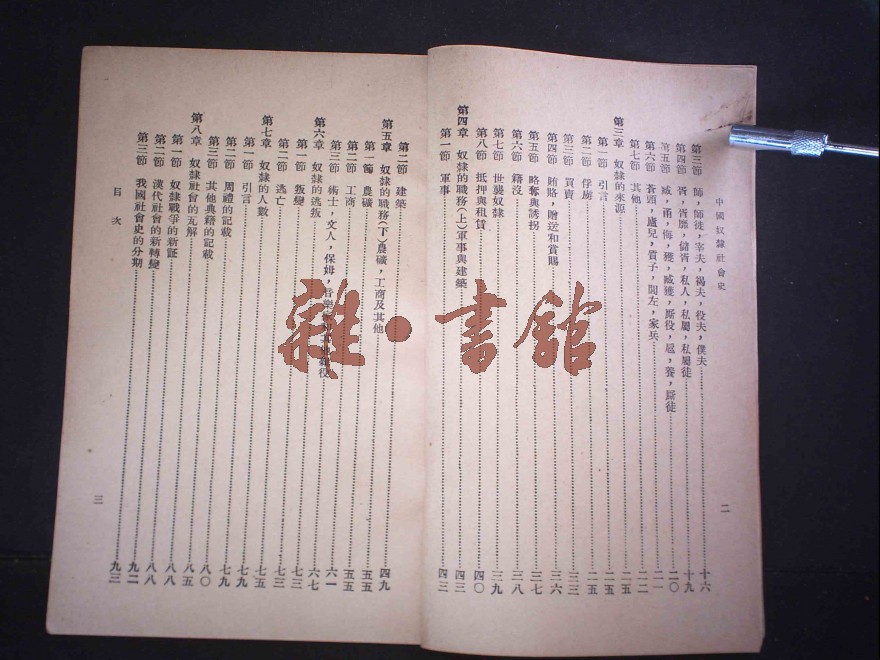 中國奴隸社會史
第三節 師，師徒，宰夫，褐夫，役夫，僕夫 十六
第四節 胥，胥靡，儲胥，私人，私屬，私屬徒 十九
第五節 臧，甬，侮，獲，臧獲，厮役，扈，養，厮徒 二〇
第六節 蒼頭，盧兒，質子，閭左，家兵 二一
第七節 其他 二二
第三章 奴隸的來源 二五
第一節 引言 二五
第二節 俘虜 二五
第三節 買賣 三三
第四節 賄賂，贈送和賞賜 三六
第五節 略奪與誘拐 三七
第六節 籍沒 三八
第七節 世襲奴隸 三九
第八節 抵押與租賃 四〇
第四章 奴隸的職務（上）軍事與建築 四三
第一節 軍事 四三
二
第二節 建築 四九
第五章 奴隸的職務（下）農礦，工商及其他
第一節 農礦 五五
第二節 工商 五五
第三節 術士，文人，保姆，音樂 役 六一
第六章 奴隸的逃叛 六七
第一節 叛變 七三
第二節 逃亡 七三
第七章 奴隸的人數 七五
第一節 引言 七九
第二節 周禮的記載 七九
第三節 其他典籍的記載 八〇
第八章 奴隸社會的瓦解 八五
第一節 奴隸戰爭的新証 八八
第二節 漢代社會的新轉變 八八
第三節 我國社會史的分期 九二
九三
目次
三
雜·書館